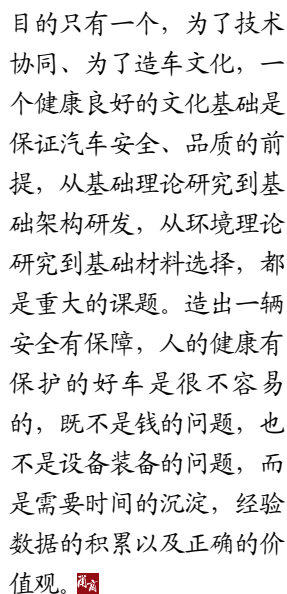 目的只有一个，为了技术
协同、为了造车文化，一
个健康良好的文化基础是
保证汽车安全、品质的前
提，从基础理论研究到基
础架构研发，从环境理论
研究到基础材料选择，都
是重大的课题。造出一辆
安全有保障，人的健康有
保护的好车是很不容易
的，既不是钱的问题，也
不是设备装备的问题，而
是需要时间的沉淀，经验
数据的积累以及正确的价
值观。